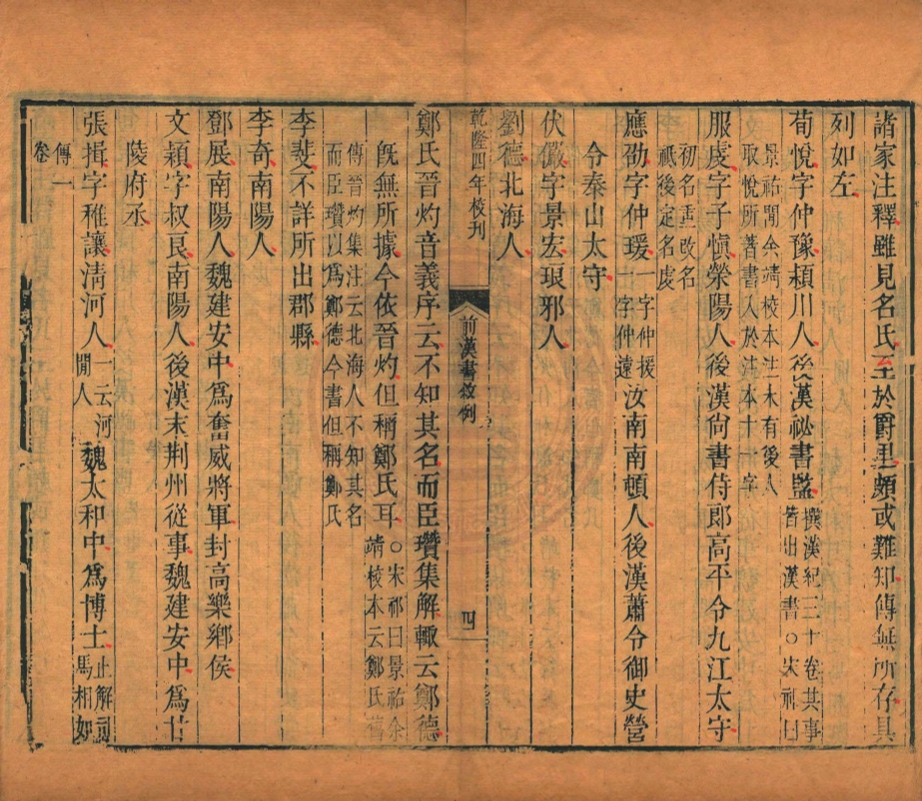 諸家注釋雖見名氏至於爵里頗或難知傳無所存具
列如左
荀悅字仲豫潁川人後漢祕書監撰漢紀三十卷其事
著出漢書○宋祁曰
景祐間余靖校本注末有後人
取悅所著書入於注本十一字
服虔字子愼滎陽人後漢尙書侍郎高平令九江太守
初名重改名
祇後定名虔
應劭字仲瑗一字仲援
一字仲遠
汝南南頓人後漢蕭令御史營
令泰山太守
伏儼字景宏琅邪人
劉德北海人
乾隆四年校刊
前漢書敘例
四
鄭氏晉灼音義序云不知其名而臣瓚集解輙云鄭德
旣無所據今依晉灼但稱鄭氏耳○宋祁曰景祐余
靖校本云鄭氏舊
傳晉灼集注云北海人不知其名
而臣瓚以爲鄭德今書但稱鄭氏
李斐不詳所出郡縣
李奇南陽人
鄧展南陽人魏建安中爲奮威將軍封高樂鄉侯
文穎字叔良南陽人後漢末荆州從事魏建安中爲甘
陵府丞
張揖字稚讓淸河人一云河
閒人
魏太和中爲博士止解司
馬相如
傳一
卷